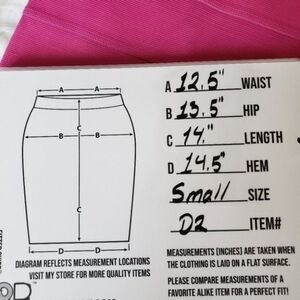 A 12.5" WAIST
B 13.5" HIP
C 14." LENGTH
D 14.5" HEM
Small SIZE
D2 ITEM#
A A
B B
C
C
D D
DIAGRAM REFLECTS MEASUREMENT LOCATIONS
VISIT MY STORE FOR MORE QUALITY ITEMS
MEASUREMENTS (INCHES) ARE TAKEN WHEN
THE CLOTHING IS LAID ON A FLAT SURFACE.
PLEASE COMPARE MEASUREMENTS OF A
FAVORITE ALIKE ITEM FOR A PERFECT FIT!